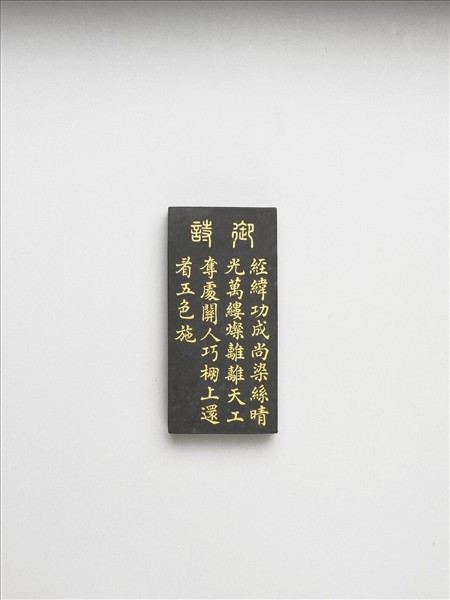 御詩
經緯功成尚染絲晴
光萬縷燦離離天工
奪處開人巧棚上還
看五色施